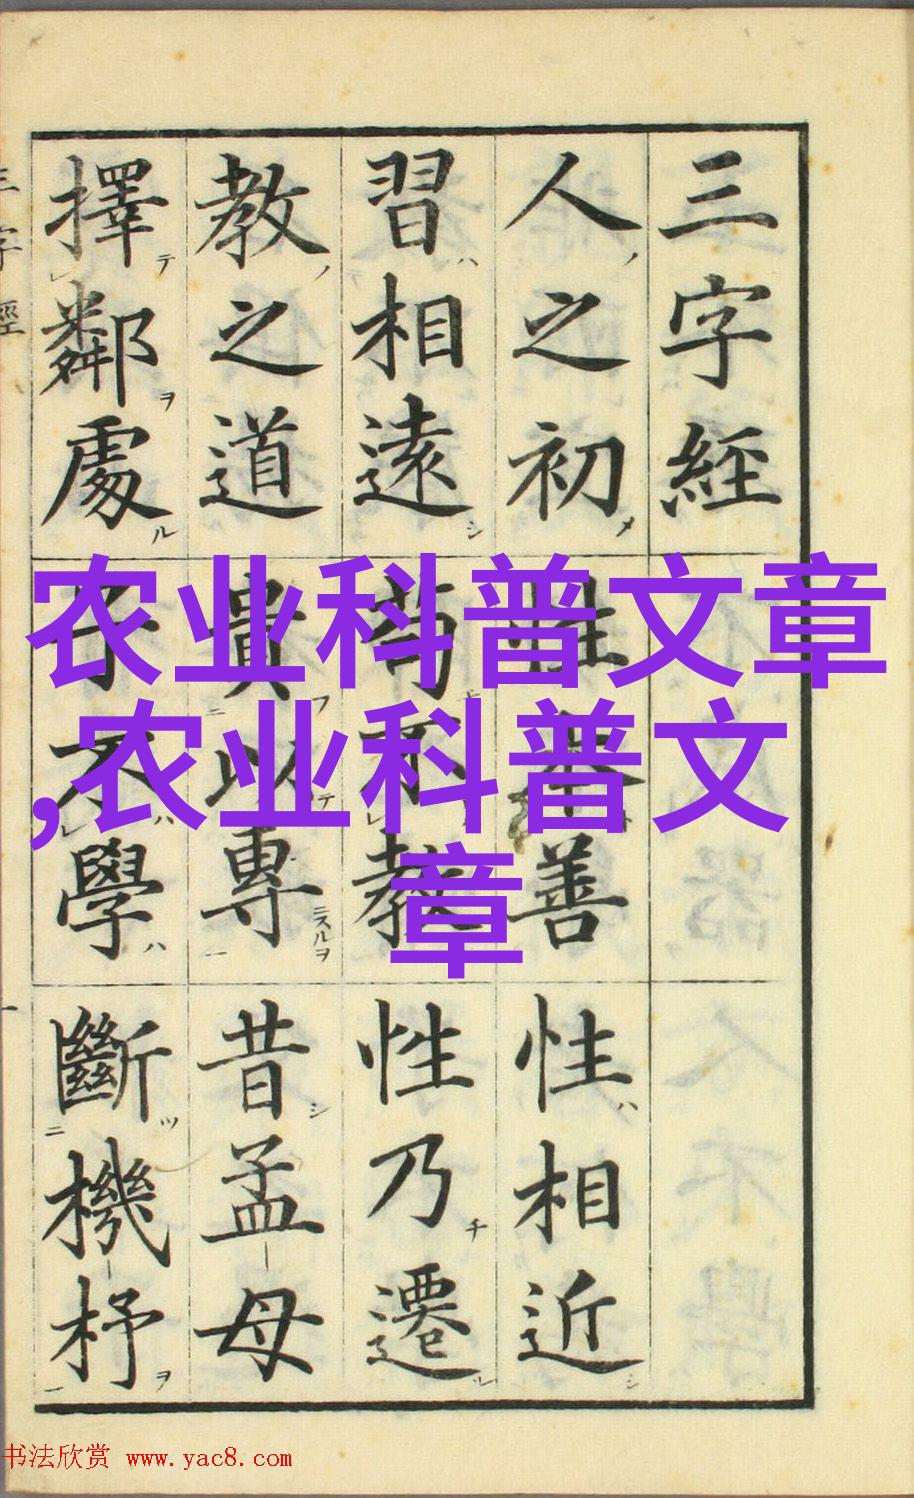 三字経
人之初 性本善 性相近
習相遠 苟不教 性乃遷
教之道 貴以專 昔孟母
擇鄰處 子不學 斷機杼
三字經
农业科普文章
,农业科普文
章
书法欣赏 www.yac8.com